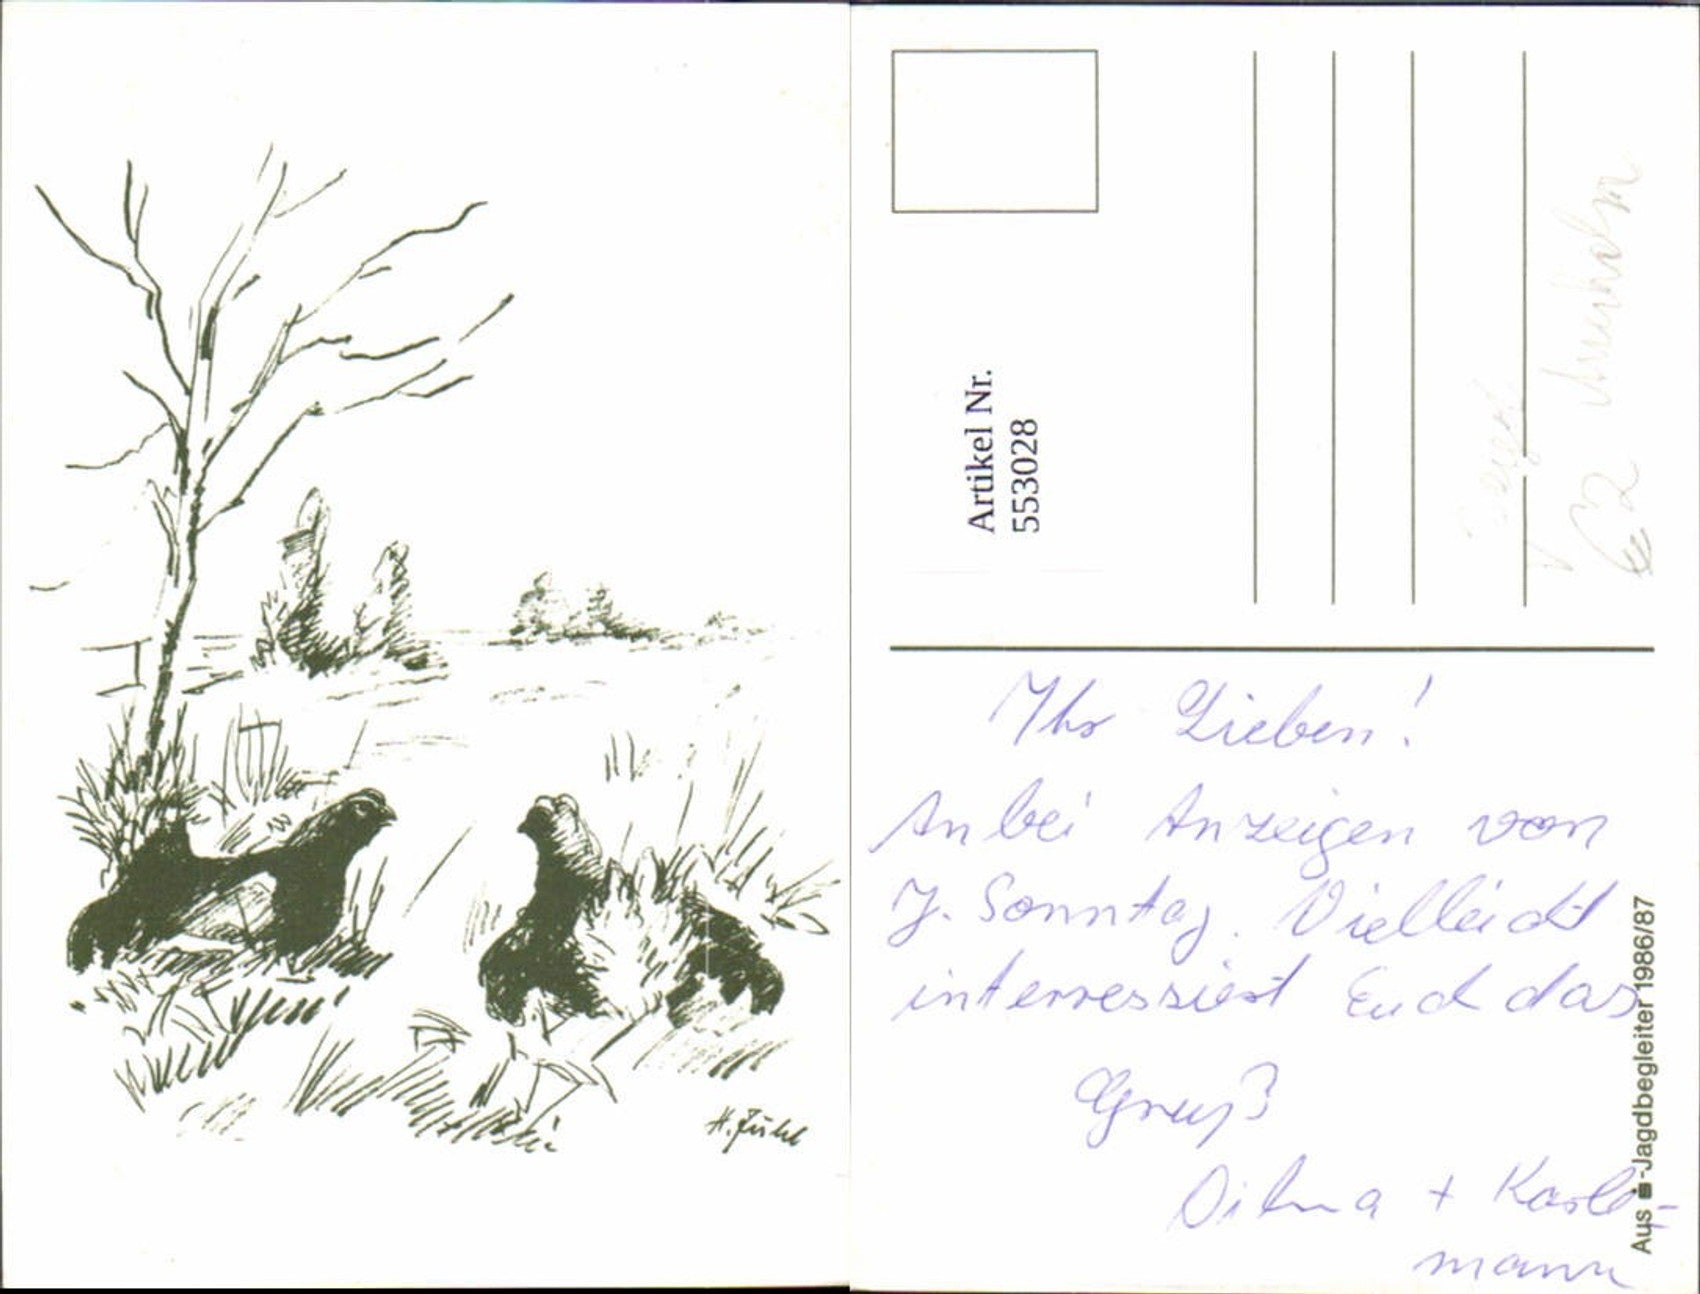 Artikel Nr.
553028
Ihr Lieben!
Anbei Anzeigen von
J. Sonntag. Vielleicht
interressiert Euch das
Gruß
Dilma + Karl-
mann
Aus -Jagdbegleiter 1986/87
62